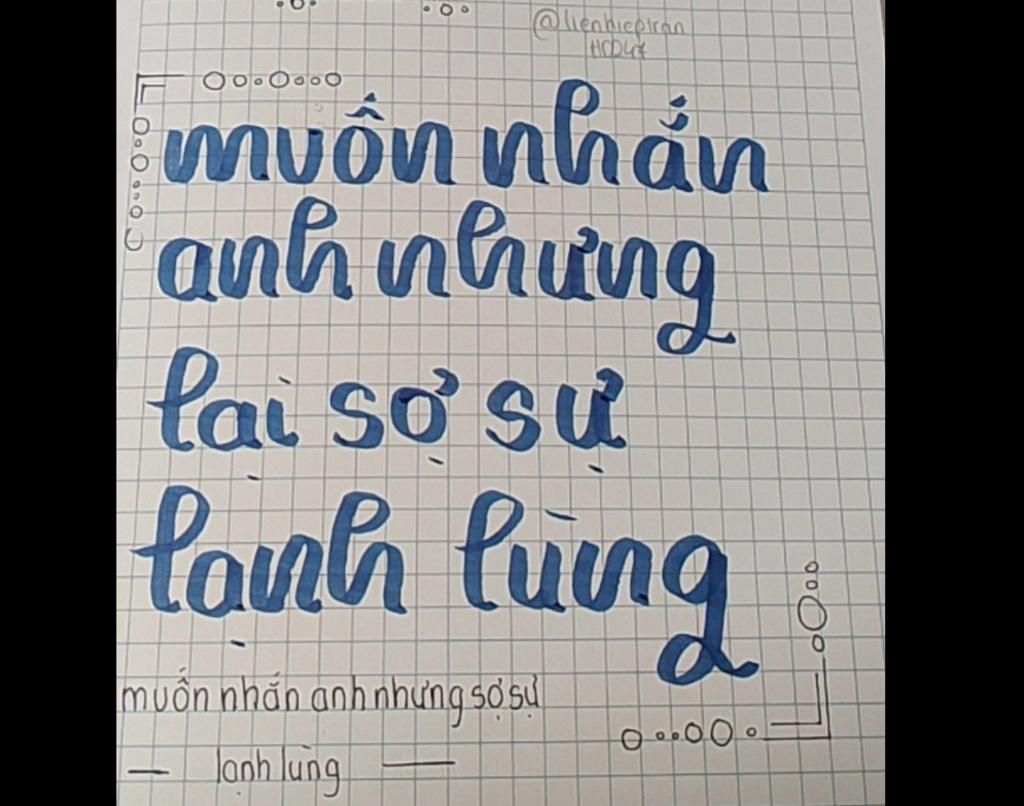 @lienhieptran
muốn nhắn
anh nhưng
lại sợ sự
lạnh lùng
muốn nhắn anh nhưng sợ sự
lạnh lùng